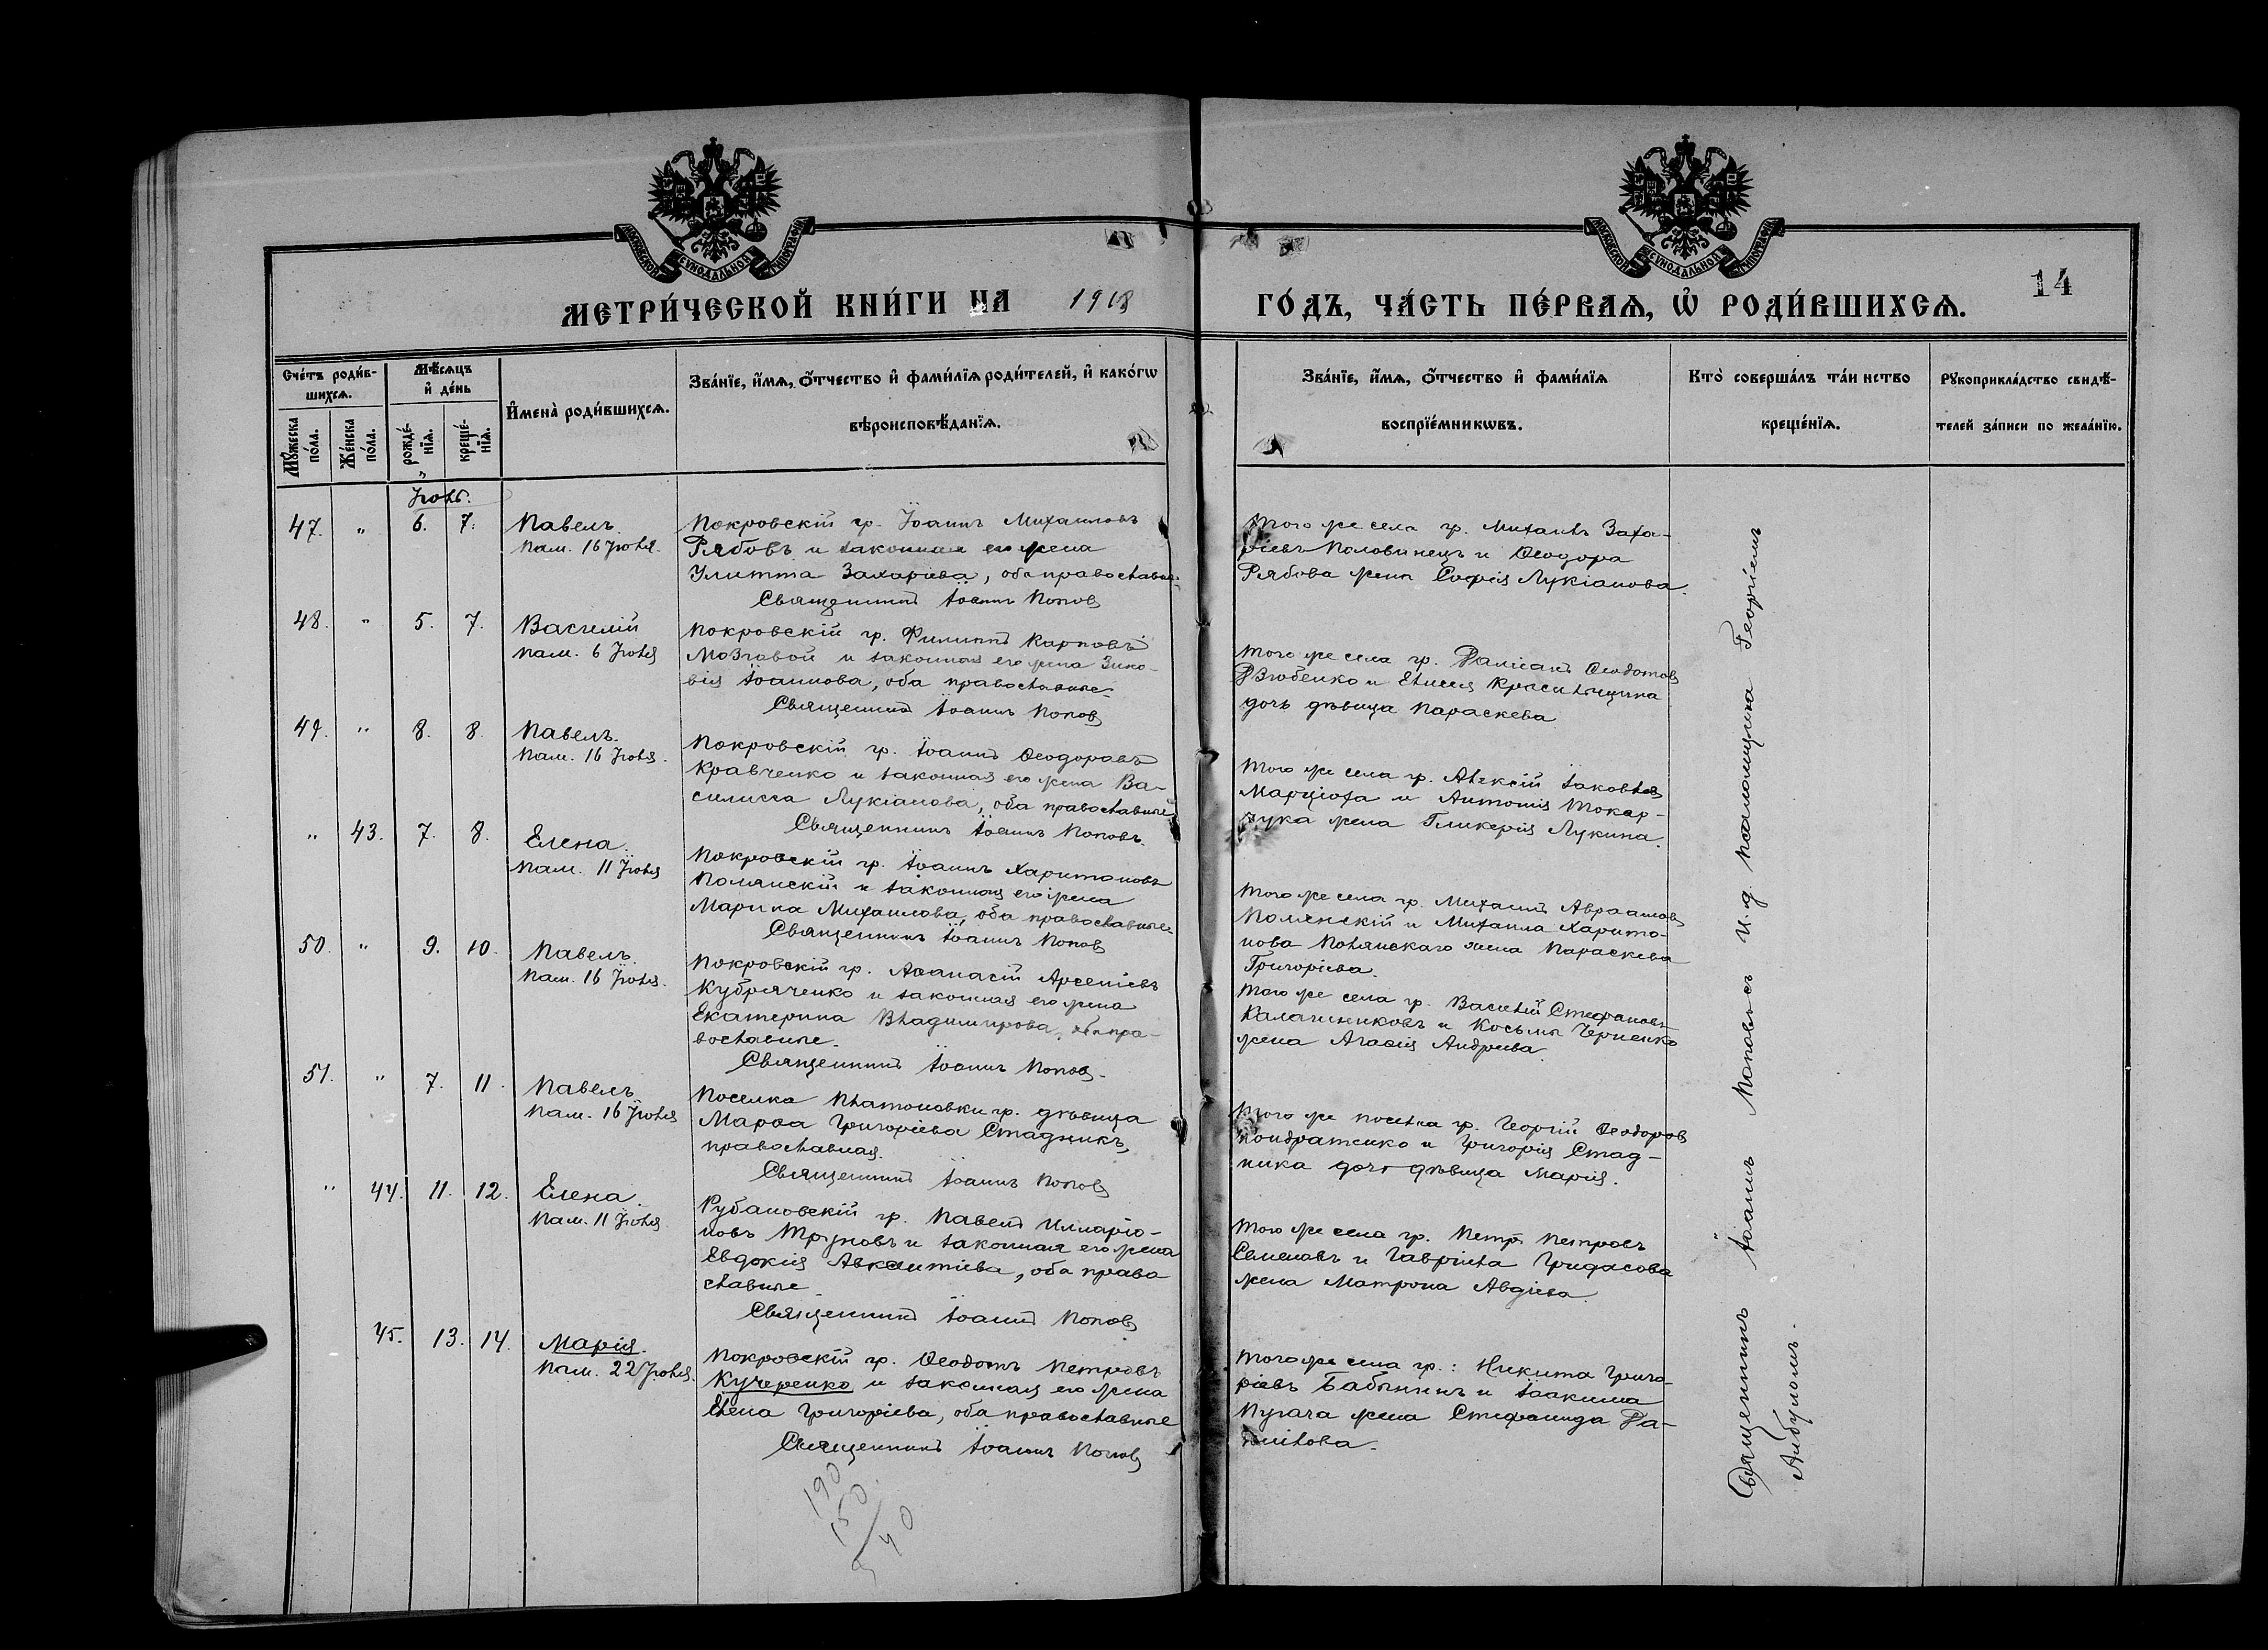 МОСКОВСКОЙ СѴНОДАЛЬНОЙ ТИПОГРАФІИ
МОСКОВСКОЙ СѴНОДАЛЬНОЙ ТИПОГРАФІИ
МЕТРИ́ЧЕСКОЙ КНИ́ГИ НА 1918
ГО́ДЪ, ЧА́СТЬ ПЕ́РВАѦ, Ѡ҆ РОДИ́ВШИХСѦ.
14
Сче́тъ роди́в-
шихсѧ.
Мѣ́сѧцъ
и҆ де́нь
Мꙋ́жеска
по́ла.
Же́нска
по́ла.
рожде́-
нїѧ.
креще́-
нїѧ.
И҆мена̀ роди́вшихсѧ.
Зва́нїе, и҆́мѧ, ѻ҆́тчество и҆ фами́лїѧ роди́телей, и҆ како́гѡ
вѣроисповѣ́данїѧ.
Зва́нїе, и҆́мѧ, ѻ҆́тчество и҆ фами́лїѧ
воспрїе́мникѡвъ.
Кто̀ соверша́лъ та́инство
креще́нїѧ.
Рꙋкоприкла́дство свидѣ́-
телей за́писи по жела́нїю.
Іюнь.
47. " 6. 7. Павелъ.
Пам. 16 Іюня.
Покровскій гр. Іоаннъ Михаиловъ
Рябовъ и законная его жена
Улитта Захаріева, оба православн.
Священникъ Іоаннъ Поповъ
Того же села гр. Михаилъ Заха-
ріевъ Половинецъ и Ѳеодора
Рябова жена Софія Лукіанова.
48. " 5. 7. Василій
Пам. 6 Іюля
Покровскій гр. Филиппъ Карповъ
Мозговой и законная его жена Зино-
вія Іоаннова, оба православные
Священникъ Іоаннъ Поповъ
Того же села гр. Ѳеодотовъ
Дзюбенко и Елисея Красильщика
дочь дѣвица Параскева
49. " 8. 8. Павелъ.
Пам. 16 Іюля.
Покровскій гр. Іоаннъ Ѳеодоровъ
Кравченко и законная его жена Ва-
силисса Лукіанова, оба православные
Священникъ Іоаннъ Поповъ.
Того же села гр. Алексій Іаковлевъ
Марцюха и Антонія Токар-
чука жена Гликерія Лукина.
" 43. 7. 8. Елена.
Пам. 11 Іюля
Покровскій гр. Іоаннъ Харитоновъ
Полянскій и законная его жена
Марина Михаилова, оба православные
Священникъ Іоаннъ Поповъ
Того же села гр. Михаилъ Авраамовъ
Полянскій и Михаила Харито-
нова Полянскаго жена Параскева
Григоріева.
50. " 9. 10. Павелъ.
Пам. 16 Іюля.
Покровскій гр. Аѳанасій Арсеніевъ
Кубряченко и законная его жена
Екатерина Владимирова, оба пра-
вославные.
Священникъ Іоаннъ Поповъ.
Того же села гр. Василій Стефановъ
Калашниковъ и Косьмы Черненко
жена Агаѳія Андреева.
51. " 7. 11. Павелъ.
Пам. 16 Іюля
Поселка Платоновки гр. дѣвица
Марѳа Григоріева Стадникъ,
православная.
Священникъ Іоаннъ Поповъ
Того же поселка гр. Георгій Ѳеодоровъ
Кондратенко и Григорія Стад-
ника дочь дѣвица Марія.
" 44. 11. 12. Елена.
Пам. 11 Іюля
Рубановскій гр. Павелъ Илларіо-
новъ Труновъ и законная его жена
Евдокія Авксентіева, оба право
славные
Священникъ Іоаннъ Поповъ
Того же села гр. Петръ Петровъ
Семеновъ и Гавріила Гридасова
жена Матрона Авдіева.
45. 13. 14. Марія.
Пам. 22 Іюля.
Покровскій гр. Ѳеодотъ Петровъ
Кучеренко и законная его жена
Елена Григоріева, оба православные
Священникъ Іоаннъ Поповъ
Того же села гр.: Никита Григо-
ріевъ Бабынинъ и Іоакима
Пугача жена Стефанида Да-
ніилова.
Священникъ Іоаннъ Поповъ съ И. д. псаломщика Георгіемъ
190
150
40